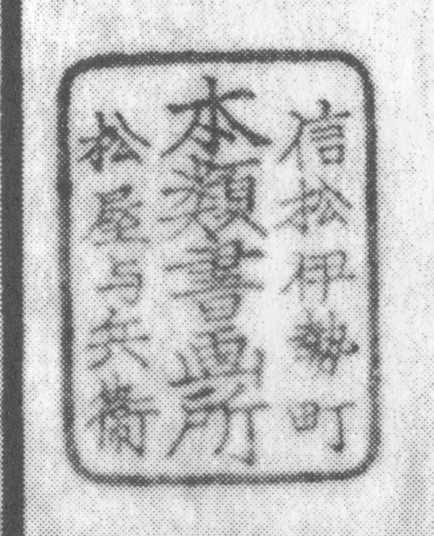 信松伊勢町
本類書皿所
松屋与兵衛